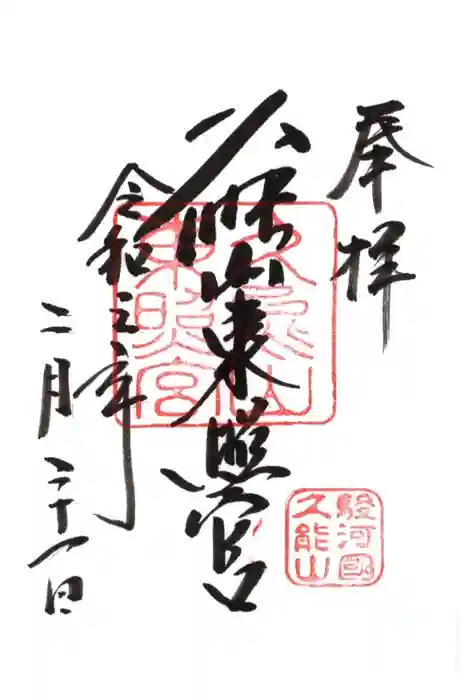 奉拝
久能山東照宮
令和年
二月二十一日
久能山
東照宮
駿河國
久能山